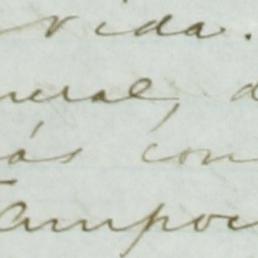 vida.
neral, d
ás con
Tampoc